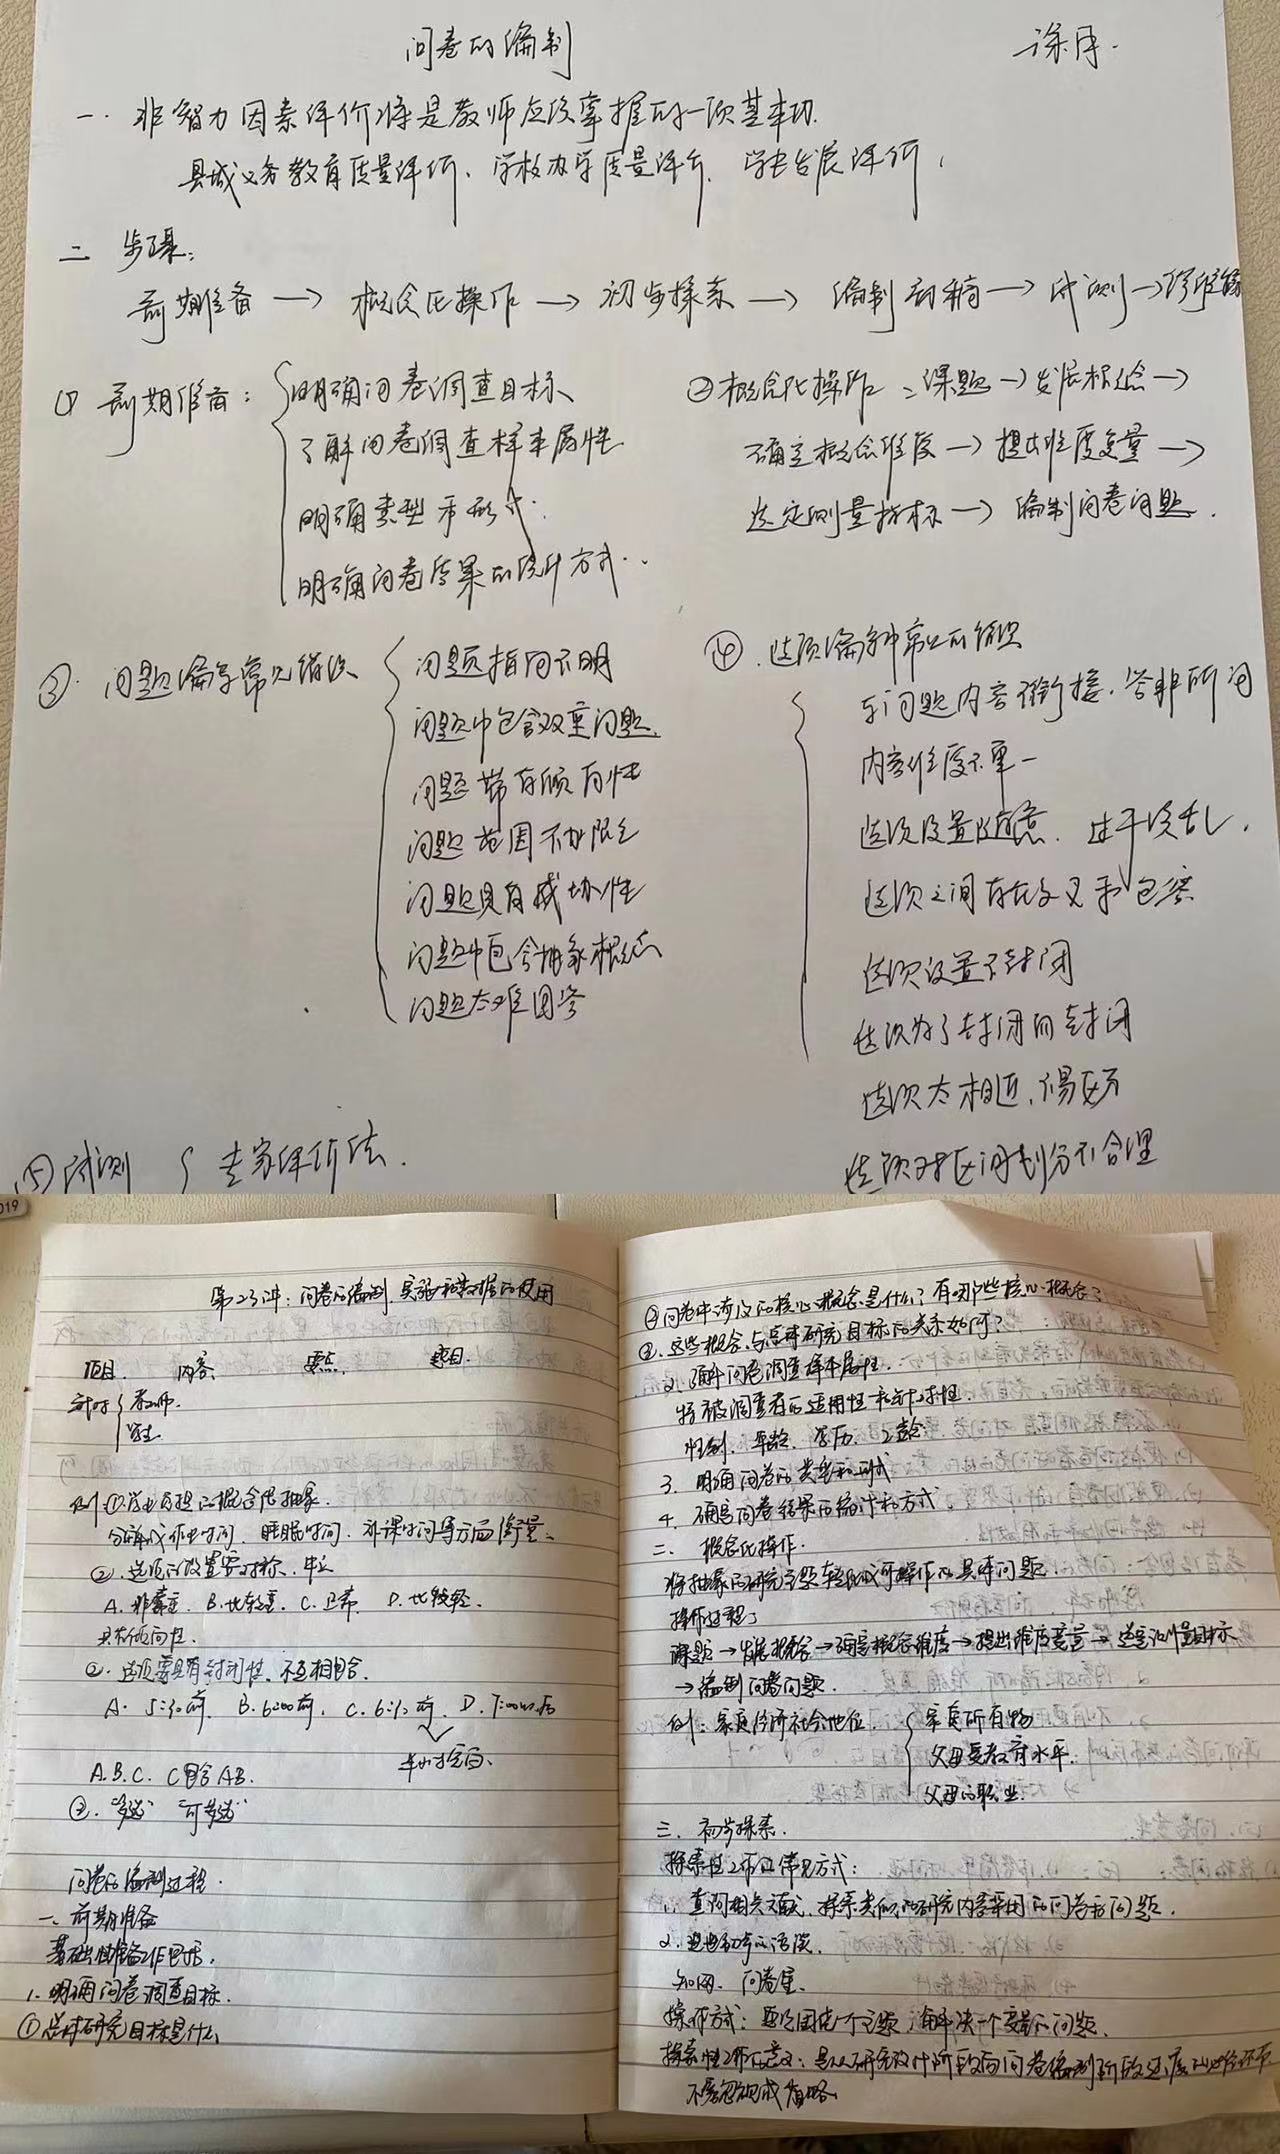 问卷的编制
一. 非智力因素评价将是教师应该掌握的一项基本功.
县域义务教育质量评价、学校办学质量评价、学生发展评价,
二 步骤:
前期准备 → 概念化操作 → 初步探索 → 编制初稿 → 试测 →
① 前期准备:
明确问卷调查目标、
了解问卷调查样本属性
明确类型和形式.
明确问卷结果的统计方式..
② 概念化操作: 课题 → 发展概念 →
确定概念维度 → 提出维度变量 →
选定测量指标 → 编制问卷问题.
③. 问题编写常见错误
问题指向不明
问题中包含双重问题.
问题带有倾向性
问题范围不加限定
问题具有威胁性
问题中包含抽象概念
问题太难回答
④. 选项编制中常见的错误
与问题内容不衔接. 答非所问
内容维度不单一
选项设置随意. 过于凌乱.
选项之间存在交叉和包容
选项设置不封闭
选项为了封闭而封闭
选项太相近, 不易区分
选项对区间划分不合理
⑤ 试测 专家评价法.
019
第23讲: 问卷的编制、实施和数据的使用
项目. 内容 要点. 题目.
针对 教师.
学生.
例 ① 学业负担的概念化抽象.
分解成作业时间. 睡眠时间. 补课时间等方面衡量.
②. 选项的设置要对称. 中立
A. 非常重. B. 比较重. C. 正常 D. 比较轻.
具有倾向性.
②. 选项要具有封闭性. 不互相包含.
A. 5:30前. B. 6:00前. C. 6:30前. D. 7:00以后
半小时空白.
A. B. C. C包含AB.
③. "多选" "可多选"
问卷的编制过程.
一. 前期准备
基础性准备工作包括.
1. 明确问卷调查目标.
① 总体研究目标是什么
② 问卷中涉及的核心概念是什么? 有哪些核心概念?
③. 这些概念与总体研究目标的关系如何?
2. 了解问卷调查样本属性.
将被调查者的适用性和针对性.
性别. 年龄. 学历. 工龄
3. 明确问卷的类型和形式
4. 确定问卷结果的统计和方式.
二. 概念化操作.
将抽象的研究主题转化成可操作的具体问题.
操作过程:
课题 → 发展概念 → 确定概念维度 → 提出维度变量 → 选定测量指标
→ 编制问卷问题.
例: 家庭经济社会地位.
家庭所有物
父母受教育水平.
父母的职业.
三. 初步探索.
探索性工作的常见方式:
查阅相关文献. 探索类似的研究内容采用的问卷和问题.
2. 进步初步的访谈.
知网. 问卷星.
操作方式: 要以围绕一个主题, 解决一个变量的问题.
探索性工作的意义: 是从研究设计阶段向问卷编制阶段过渡的必经环节
不要忽视或省略